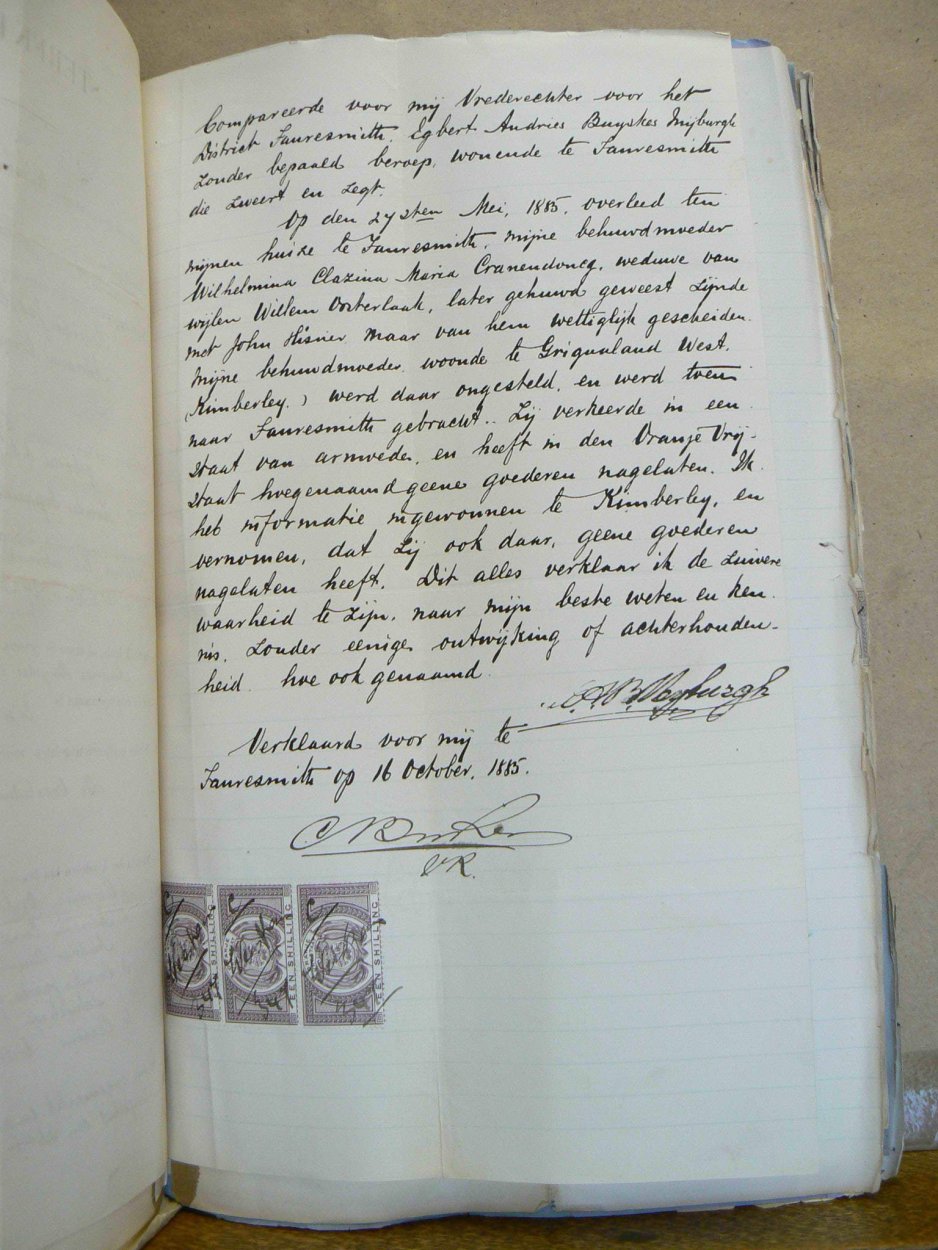 Compareerde voor mij Vrederechter voor het
District Fauresmith, Egbert Andries Buyskes Mijburgh
zonder bepaald beroep, wonende te Fauresmith
die zweert en zegt.
Op den 27sten Mei, 1885, overleed ten
mijnen huize te Fauresmith, mijne behuwdmoeder
Wilhelmina Clazina Maria Cranendoncq, weduwe van
wijlen Willem Oosterlaak, later gehuwd geweest zijnde
met John Hisner, maar van hem wettiglijk gescheiden.
Mijne behuwdmoeder, woonde te Griqualand West,
(Kimberley.) werd daar ongesteld, en werd toen
naar Fauresmith gebracht. Zij verkeerde in een
staat van armoede, en heeft in den Oranje Vrij-
staat hoegenaamd geene goederen nagelaten. Ik
heb informatie ingewonnen te Kimberley, en
vernomen, dat zij ook daar, geene goederen
nagelaten heeft. Dit alles verklaar ik de zuivere
waarheid te zijn, naar mijn beste weten en ken-
nis, zonder eenige ontwijking of achterhouden-
heid hoe ook genaamd.
E.A.B. Myburgh
Verklaard voor mij te
Fauresmith op 16 October, 1885.
VR.
EEN SHILLING
EEN SHILLING
EEN SHILLING